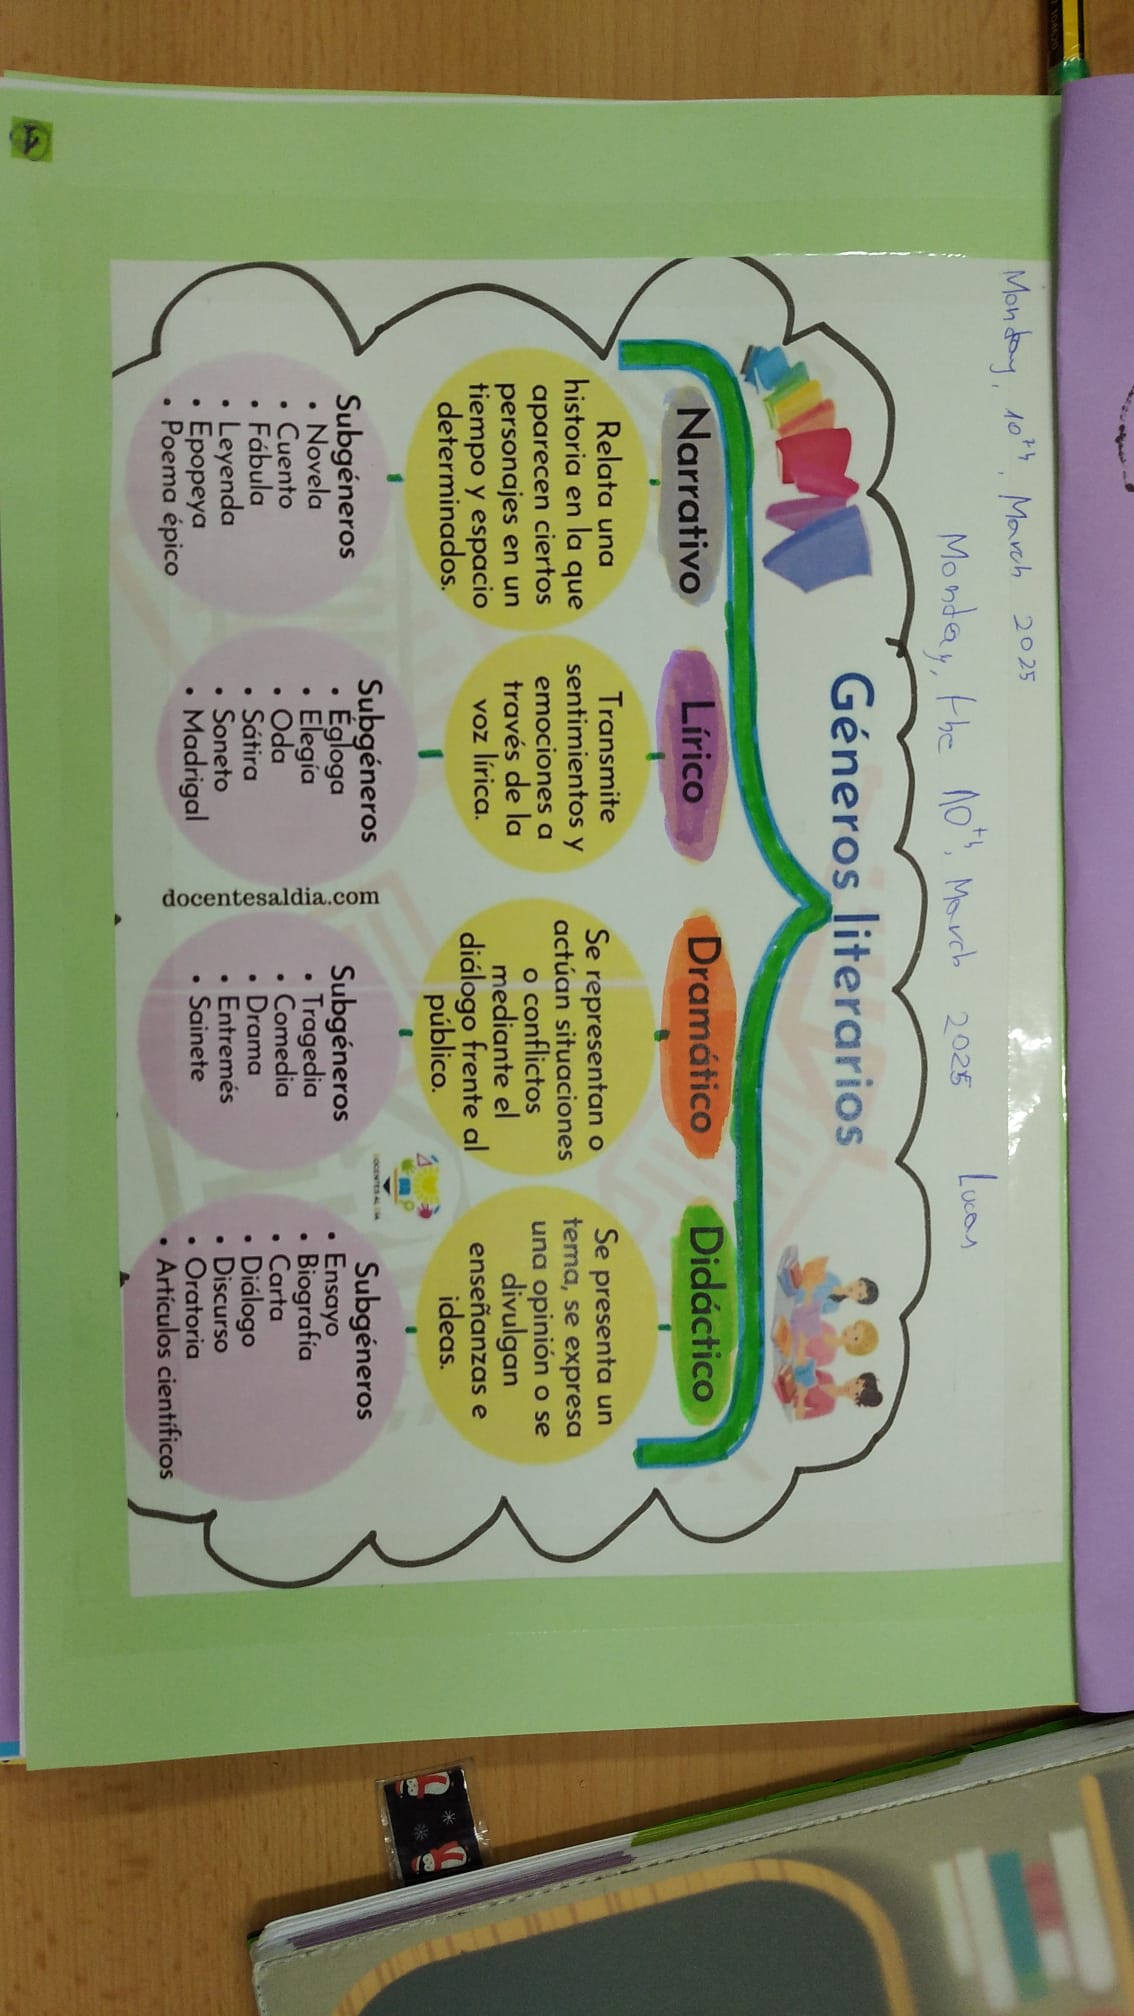 Monday, 10th, March 2025
Monday, the 10th, March 2025
Lucas
Géneros literarios
Narrativo
Relata una
historia en la que
aparecen ciertos
personajes en un
tiempo y espacio
determinados.
Subgéneros
• Novela
• Cuento
• Fábula
• Leyenda
• Epopeya
• Poema épico
Lírico
Transmite
sentimientos y
emociones a
través de la
voz lírica.
Subgéneros
• Égloga
• Elegía
• Oda
• Sátira
• Soneto
• Madrigal
Dramático
Se representan o
actúan situaciones
o conflictos
mediante el
diálogo frente al
público.
Subgéneros
• Tragedia
• Comedia
• Drama
• Entremés
• Sainete
Didáctico
Se presenta un
tema, se expresa
una opinión o se
divulgan
enseñanzas e
ideas.
Subgéneros
• Ensayo
• Biografía
• Carta
• Diálogo
• Discurso
• Oratoria
• Artículos científicos
docentesaldia.com
DOCENTES AL DIA